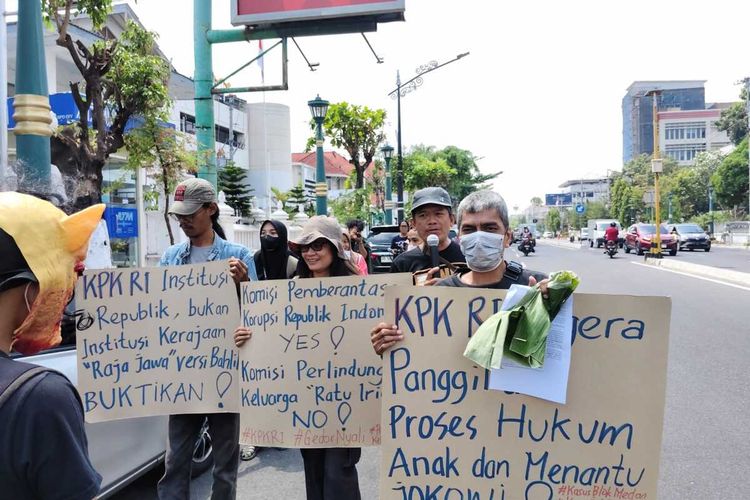 KPK RI Institusi
Republik, bukan
Institusi Kerajaan
"Raja Jawa" versi Bahlil
BUKTIKAN!
Komisi Pemberantas
Korupsi Republik Indon
YES!
Komisi Perlindung
Keluarga "Ratu Iri
NO!
#KPKRI #GedorNyali
KPK RI gera
Panggil
Proses Hukum
Anak dan Menantu
Jokowi
#Kasus Blok Medan